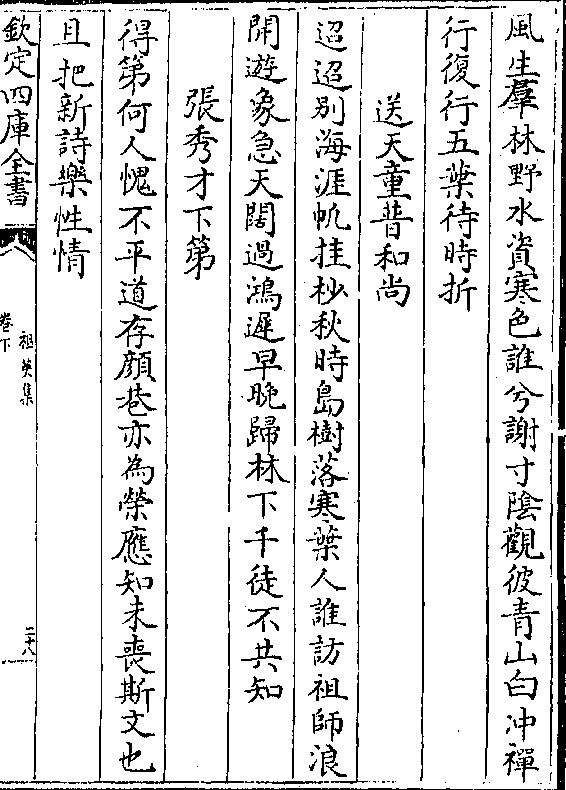 風生羣林野水資寒色誰兮謝寸陰觀彼青山白冲禪
行復行五葉待時折
送天童普和尚
迢迢別海涯帆挂杪秋時島樹落寒葉人誰訪祖師浪
開遊象急天闊過鴻遲早晚歸林下千徒不共知
張秀才下第
得第何人愧不平道存顔巷亦為榮應知未喪斯文也
且把新詩樂性情
欽定四庫全書
祖英集
卷下
二十八